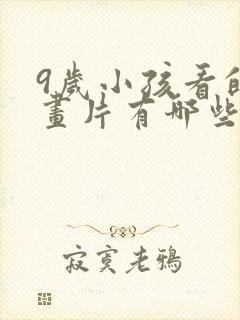 9歲小孩看的
畫片有哪些
寂寞老鴉